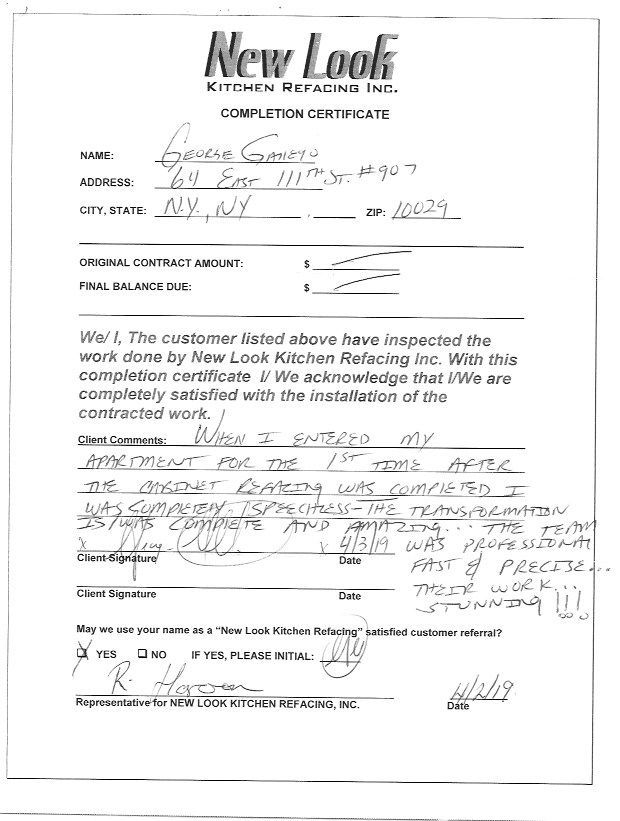 New Look
KITCHEN REFACING INC.
COMPLETION CERTIFICATE
NAME: GEORGE
ADDRESS: 64 EAST 111TH ST. #907
CITY, STATE: N.Y., NY , ZIP: 10029
ORIGINAL CONTRACT AMOUNT: $
FINAL BALANCE DUE: $
We/ I, The customer listed above have inspected the
work done by New Look Kitchen Refacing Inc. With this
completion certificate I/ We acknowledge that I/We are
completely satisfied with the installation of the
contracted work.
Client Comments: WHEN I ENTERED MY
APARTMENT FOR THE 1ST TIME AFTER
THE CABINET REFACING WAS COMPLETED I
WAS COMPLETELY SPEECHLESS - THE TRANSFORMATION
IS/WAS COMPLETE AND AMAZING... THE TEAM
x x 4/3/19 WAS PROFESSIONAL
Client Signature Date FAST & PRECISE...
THEIR WORK...
Client Signature Date STUNNING!!!
May we use your name as a "New Look Kitchen Refacing" satisfied customer referral?
YES NO IF YES, PLEASE INITIAL:
R. 4/2/19
Representative for NEW LOOK KITCHEN REFACING, INC. Date